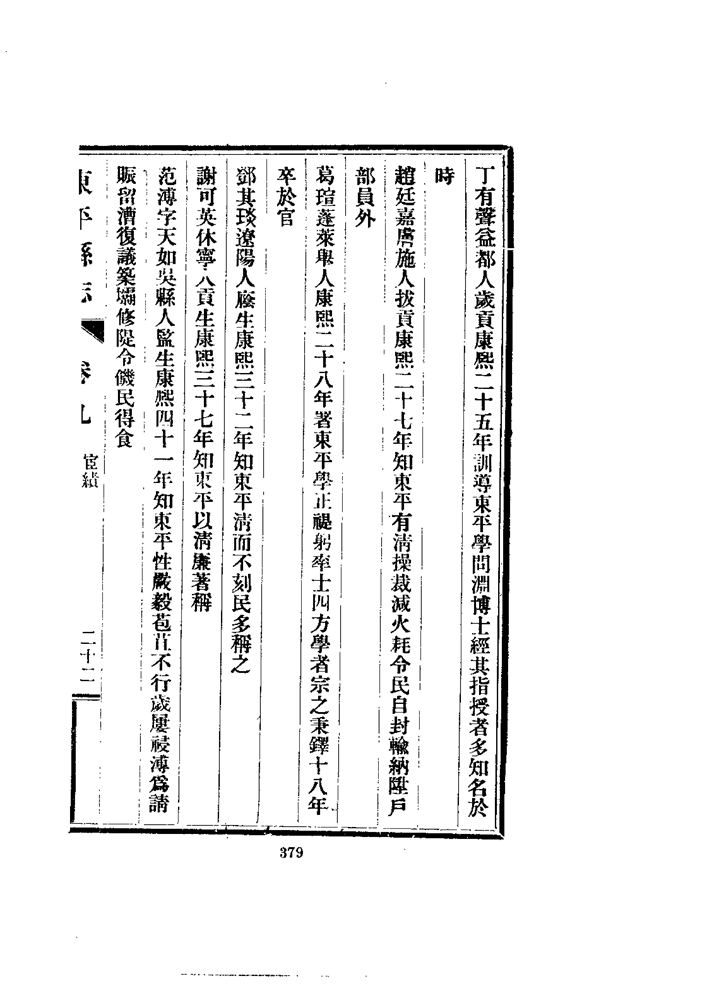 丁有聲益都人歲貢康熙二十五年訓導東平學問淵博士經其指授者多知名於
時
趙廷嘉膚施人拔貢康熙二十七年知東平有清操裁減火耗令民自封輸納陞戶
部員外
葛瑄蓬萊舉人康熙二十八年著東平學正禔躬率士四方學者宗之秉鐸十八年
卒於官
鄧其琰遼陽人廕生康熙三十二年知東平清而不刻民多稱之
謝可英休寧人貢生康熙三十七年知東平以清廉著稱
范溥字天如吳縣人監生康熙四十一年知東平性嚴毅苞苴不行歲屢祲溥爲請
賑留漕復議築壩修隄令饑民得食
東平縣志 卷九 宦績 二十二
379